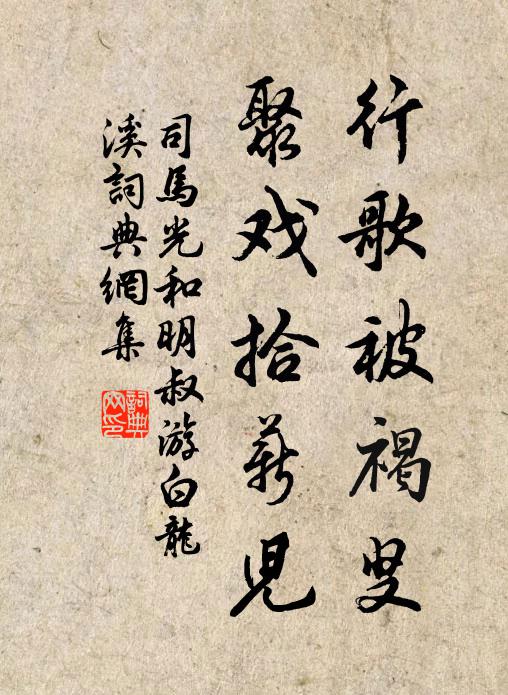 行歌被褐叟
聚戏拾薪兒
司馬光和明叔游白龍
溪詞典網集
詞典网印